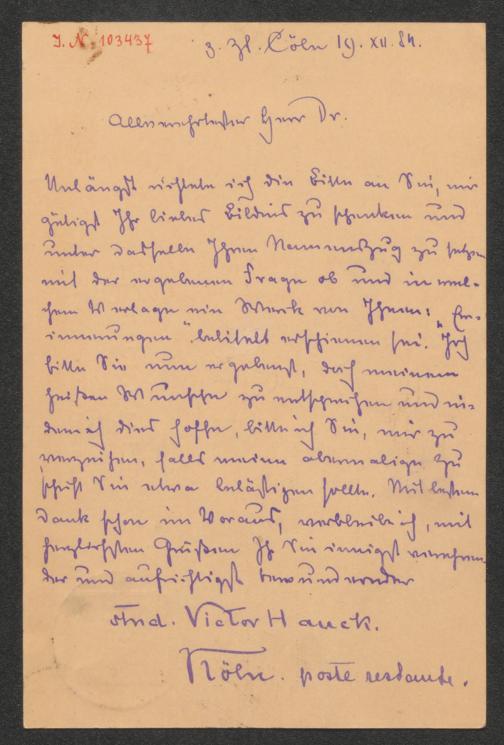 I. N. 103437
z. Zt. Cöln 19. XII. 84.
Allverehrtester Herr Dr.
Unlängst richtete ich die Bitte an Sie, mir
gütigst Ihr liebes Bildnis zu schenken und
unter dasselbe Ihren Namenszug zu setzen
mit der ergebenen Frage ob und in wel-
chem Verlage ein Werk von Ihnen: „Er-
innerungen" betitelt erschienen sei. Ich
bitte Sie nun ergebenst, doch meinem
heißen Wunsche zu entsprechen und in-
dem ich dies hoffe, bitte ich Sie, mir zu
verzeihen, falls meine abermalige Zu
schrift Sie etwa belästigen sollte. Mit bestem
Dank schon im Voraus, verbleibe ich, mit
herzlichsten Grüßen Ihr Sie innigst verehren
der und aufrichtigst bewundernder
stud. Victor Hauck.
Köln. poste restante.